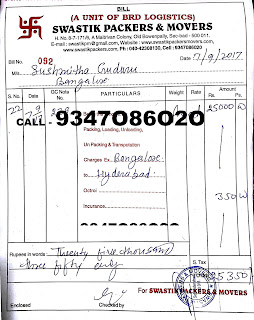 BILL
(A UNIT OF BRD LOGISTICS)
SWASTIK PACKERS & MOVERS
H. No. 8-7-171/6, A Maithrivan Colony, Old Bowenpally, Sec-bad - 500 011.
E-mail : swastikpm@gmail.com, Website : www.swastikpackersmovers.com,
Ph : 040-42308130, Cell : 9347086020
Bill No. 092
Date 7/9/2017
M/s. Sushmitha
Bangalore
S. No. Date GC Note No. PARTICULARS Weight Rate Amount Rs. Ps.
25000
CALL - 9347086020
Packing, Loading, Unloading,
Un Packing & Transportation
Charges Ex. Bangalore
to Hyderabad.
Octroi
350
Insurance
Rupees in words : Twenty five thousand
three fifty only
S. Tax
25350
For SWASTIK PACKERS & MOVERS
Enclosed
Checked by